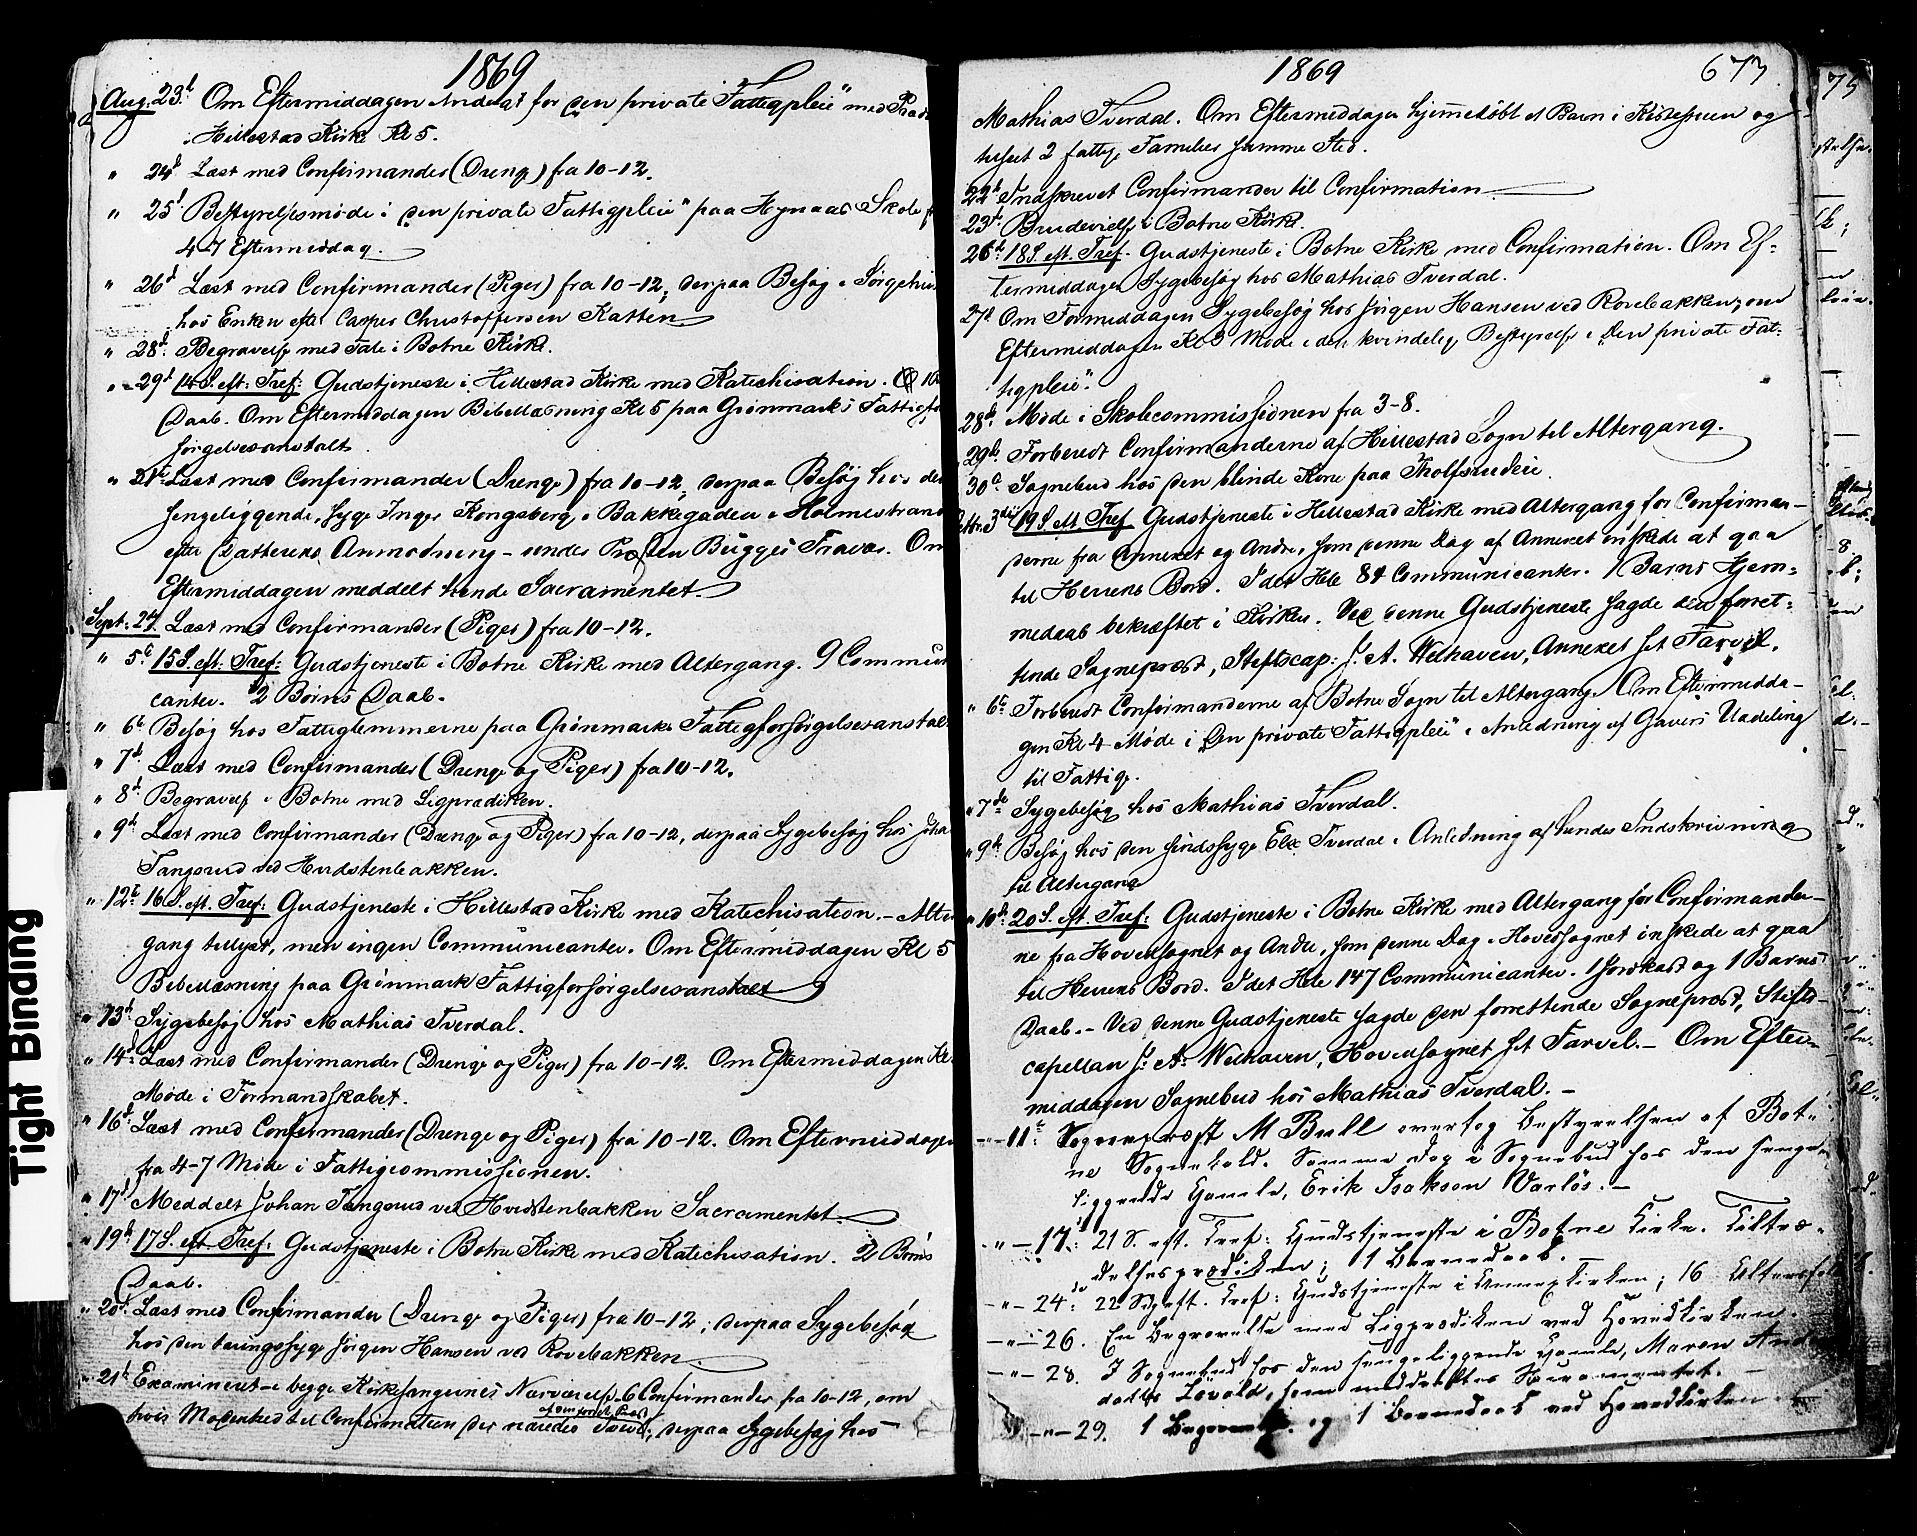 1869
Aug. 23d Om Eftermiddagen Andagt for den private Fattigpleie" med
Hillestad Kirke Kl 5.
" 24d Læst med Confirmander (Drenge) fra 10-12.
" 25d Bestyrelsesmøde i den private Fattigpleie" paa Hynaas Skole
4-7 Eftermiddag.
" 26d Læst med Confirmander (Piger) fra 10-12, derpaa Besøg i
hos Enken efter Casper Christoffersen Katten.
" 28d Begravelse med Tale i Botne Kirke.
" 29d 14 S. eft: Tref: Gudstjeneste i Hillestad Kirke med Katechisation.
Daab. Om Eftermiddagen Bibellæsning Kl 5 paa Grønmarks
sørgelsesanstalt
" 31te Læst med Confirmander (Drenge) fra 10-12, derpaa Besøg hos
sengeliggende, syge Inger Kongsberg i Bakkegaden i
efter Datterens Anmodning - under Præsten Bugges Fravær. Om
Eftermiddagen meddelt hende Sacramentet.
Sept: 2d. Læst med Confirmander (Piger) fra 10-12.
" 5te 15 S. eft: Tref: Gudstjeneste i Botne Kirke med Altergang. 9 Commun
canter. 2 Børns Daab.
" 6te Besøg hos Fattiglemmerne paa Grønmarks Fattigforsørgelsesanstal
" 7d Læst med Confirmander (Drenge og Piger) fra 10-12.
" 8d Begravelse i Botne med Ligprædiken.
" 9d Læst med Confirmander (Drenge og Piger) fra 10-12, derpaa Sygebesøg hos Joha
Tangerud ved Hvidstenbakken.
" 12te 16 S. eft. Tref: Gudstjeneste i Hillestad Kirke med Katechisation. - Alter
gang tillyst, men ingen Communicanter. Om Eftermiddagen Kl 5
Bibellæsning paa Grønmarks Fattigforsørgelsesanstalt
" 13d Sygebesøg hos Mathias Tverdal.
" 14d Læst med Confirmander (Drenge og Piger) fra 10-12. Om Eftermiddagen Kl.
Møde i Formandskabet.
" 16d Læst med Confirmander (Drenge og Piger) fra 10-12. Om Eftermiddagen
fra 4-7 Møde i Fattigcommissionen.
" 17d Meddelt Johan Tangerud ved Hvidstenbakken Sacramentet.
" 19d 17 S. eft Tref: Gudstjeneste i Botne Kirke med Katechisation. 2 Børns
Daab.
" 20d Læst med Confirmander (Drenge og Piger) fra 10-12; derpaa Sygebesøg
hos den syge Jørgen Hansen ved Rovebakken.
" 21d Examineret i begge Kirkesangernes Nærværelse 6 Confirmander fra 10-12, om
hvis Modenhed til Confirmation der næredes Tvivl, derpaa Sygebesøg hos
1869
673
Mathias Tverdal. Om Eftermiddagen hjemmedøbt et Barn i og
tilseet 2 fattige Familier samme Sted.
22d Indskrevet Confirmander til Confirmation
23d Brudevielse i Botne Kirke.
26d 18 S. eft. Tref. Gudstjeneste i Botne Kirke med Confirmation. Om Ef-
termiddagen Sygebesøg hos Mathias Tverdal.
27d Om Formiddagen Sygebesøg hos Jørgen Hansen ved Rovebakken, om
Eftermiddagen Kl 3 Møde i den kvindelige Bestyrelse i "Den private Fat-
tigpleie".
28d Møde i Skolecommissionen fra 3-8.
29d Forberedt Confirmanderne af Hillestad Sogn til Altergang.
30d Sognebud hos den blinde Kone paa Tholfsrudeie.
3die 19 S. eft Tref Gudstjeneste i Hillestad Kirke med Altergang for Confirman-
derne fra Annexet og Andre, som denne Dag af Annexet ønskede at gaa
til Herrens Bord. I det Hele 84 Communicanter. 1 Barns Hjem-
medaab bekræftet i Kirken. Ved denne Gudstjeneste sagde den forret-
tende Sognepræst, Stiftscap: J. A. Welhaven, Annexet sit Farvel.
" 6te Forberedt Confirmanderne af Botne Sogn til Altergang. Om Eftermidda-
gen Kl 4 Møde i Den private Fattigpleie" i Anledning af Gavers Uddeling
til Fattige.
" 7de Sygebesøg hos Mathias Tverdal.
" 9de Besøg hos den sindssyge Else Tverdal i Anledning af hendes Indskrivning
til Altergang
" 10de 20 S. eft. Tref: Gudstjeneste i Botne Kirke med Altergang for Confirmander-
ne fra Hovedsognet og Andre, som denne Dag i Hovedsognet ønskede at gaa
til Herrens Bord. I det Hele 147 Communicanter. 1 Jordkast og 1 Barns
Daab. - Ved denne Gudstjeneste sagde den forrettende Sognepræst, Stifts-
capellan J. A. Welhaven, Hovedsognet sit Farvel. - Om Efter-
middagen Sognebud hos Mathias Tverdal. -
-"-11te Sognepræst M Bull overtog Bestyrelsen af Bot-
ne Sognekald. Samme Dag i Sognebud hos den senge-
liggende Gamle, Erik Isaksen Varløs. -
-"-17. 21 S. eft. Tref: Gudstjeneste i Botne Kirke. Tiltræ-
delsesprædiken; 1 Barnedaab. -
-"-24: 22 S. eft. Tref: Gudstjeneste i Annexkirken; 16
-"-26. En Begravelse med Ligprædiken ved Hovedkirken.
-"-28. I Sognebud hos den sengeliggende Gamle, Maren
datter Løvald, som meddeeltes Sacramentet. -
-"-29. 1 Begravelse og 1 Barnedaab ved Hovedkirken.
75
Tight Binding